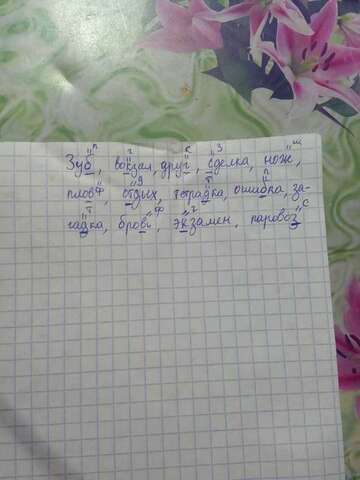 "п" "г" "к" "з" "ш"
Зуб, вокзал, друг, сделка, нож,
"ф" "д" "т" "п"
плов, отдых, тетрадка, ошибка, за-
"т" "ф" "г" "с"
гадка, бровь, экзамен, паровоз